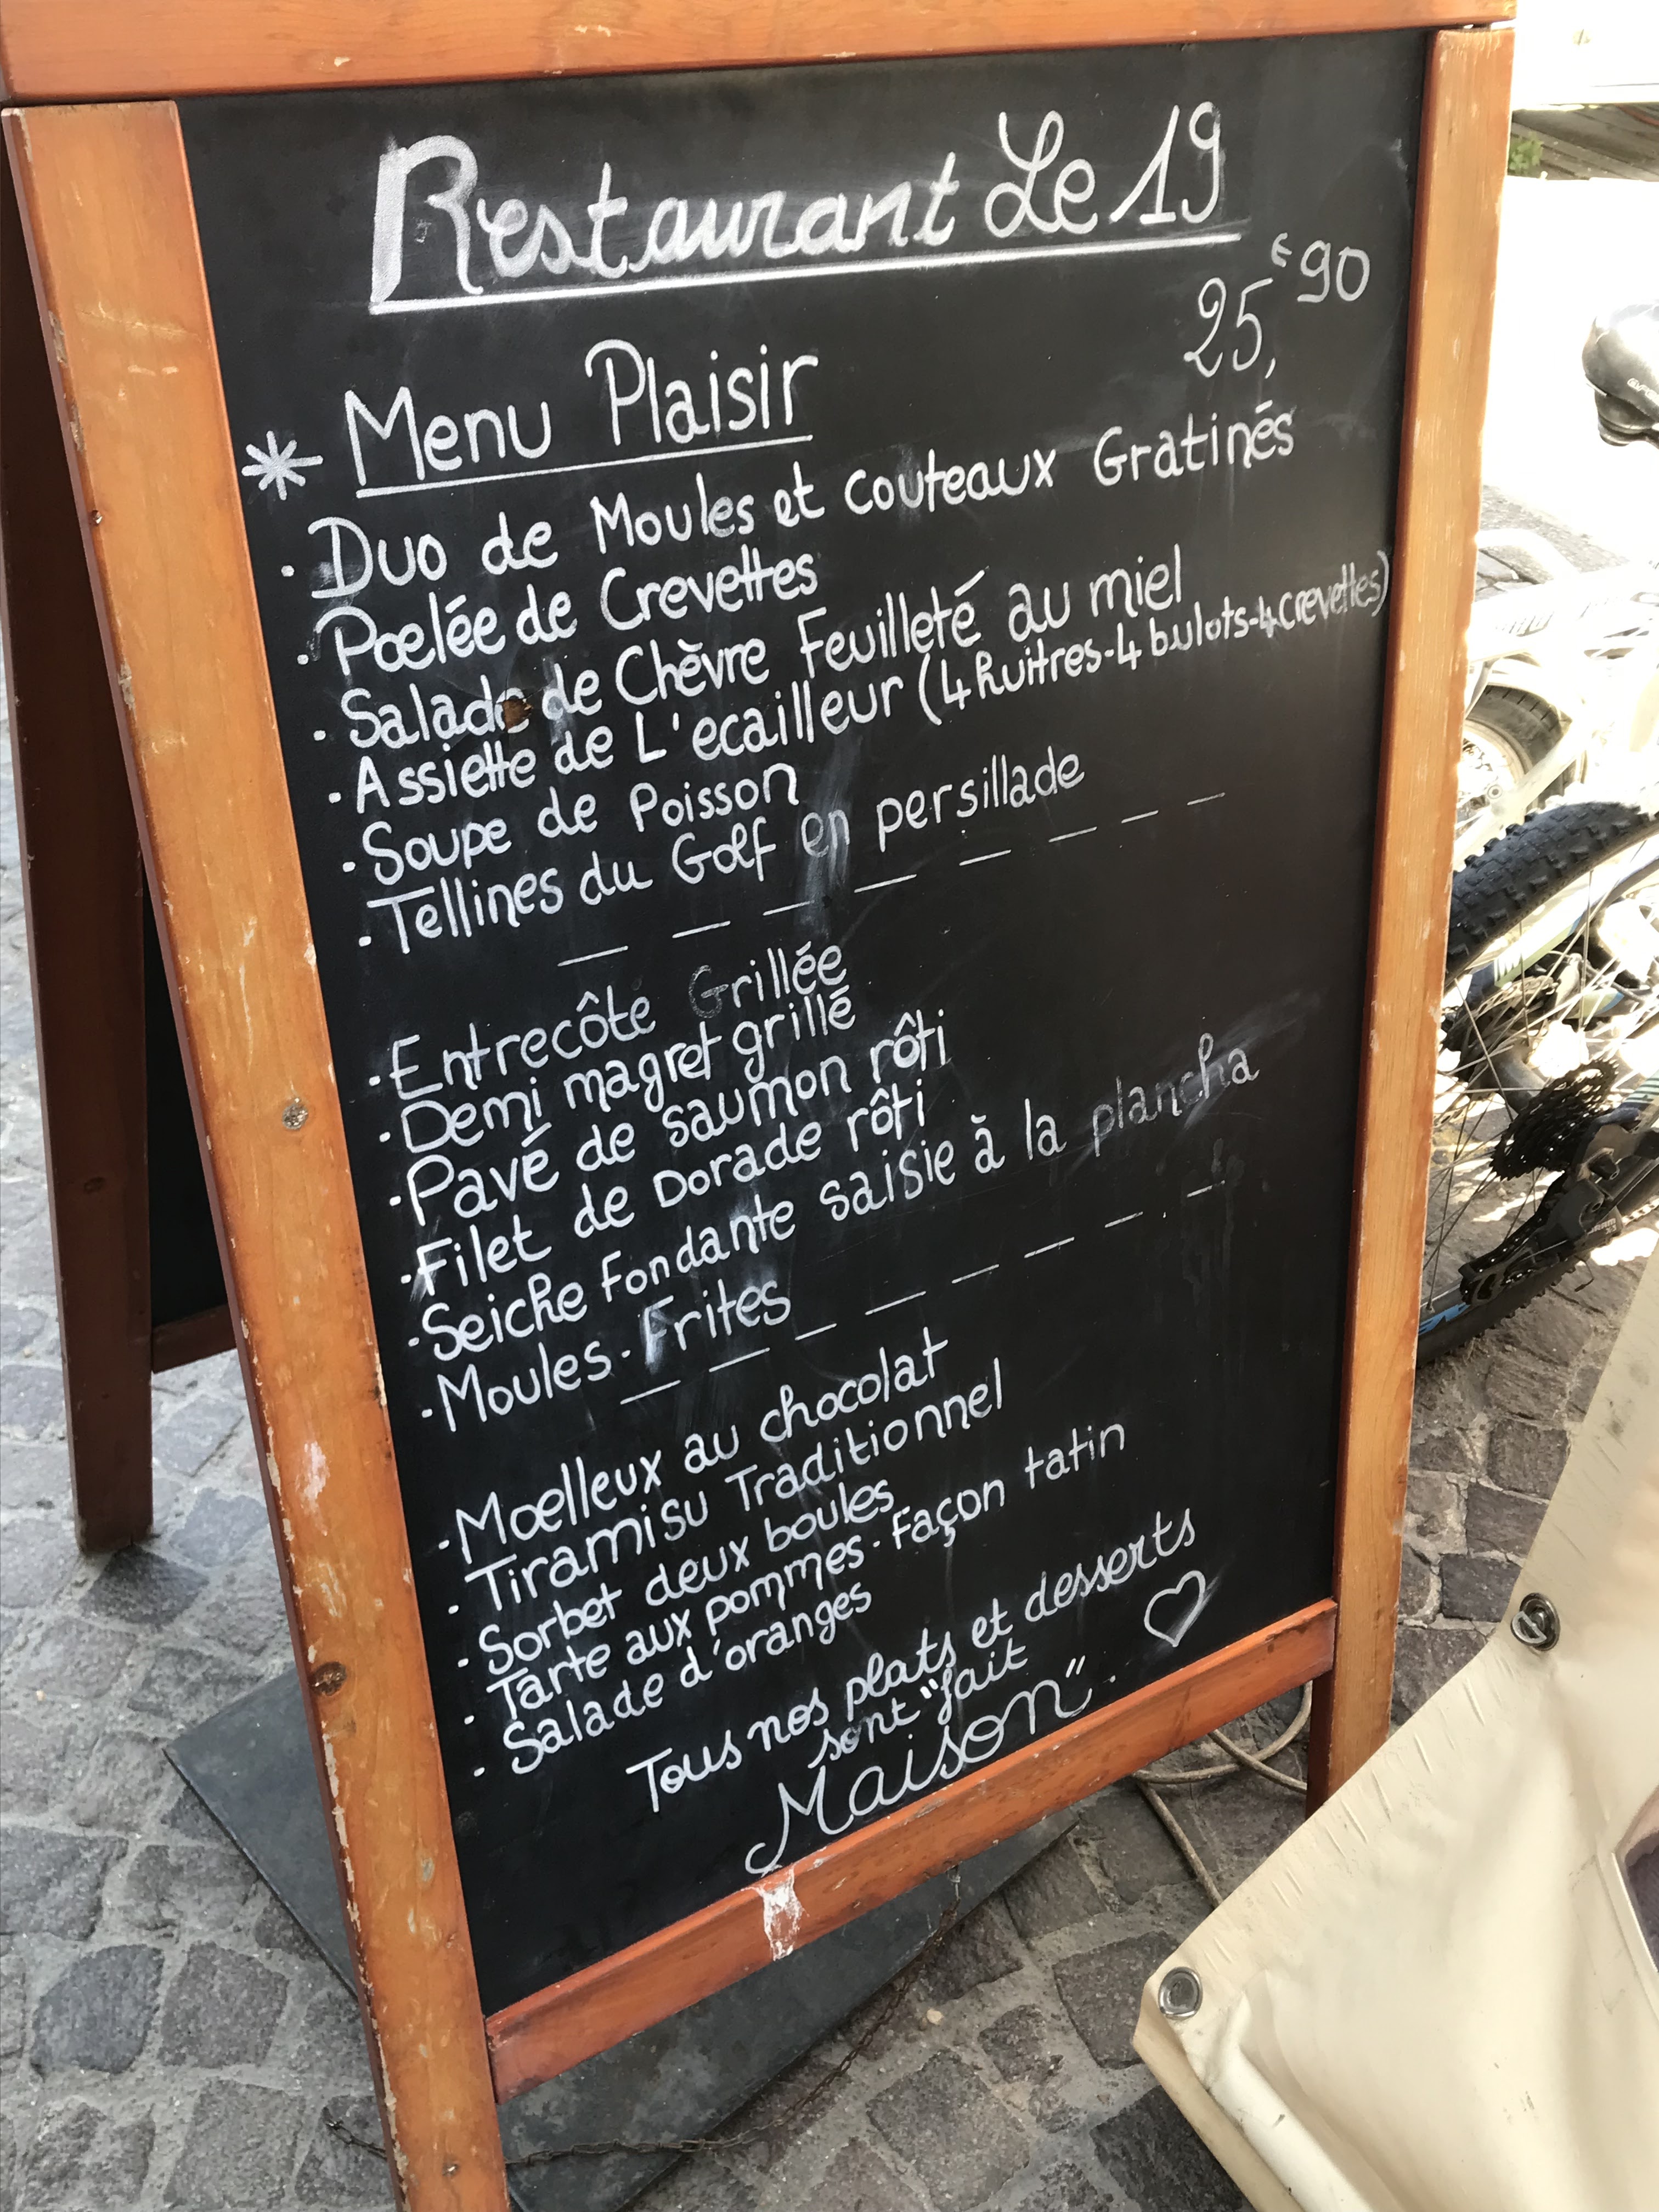 Restaurant Le 19
25,€90
* Menu Plaisir
· Duo de Moules et couteaux Gratinés
· Poelée de Crevettes
· Salade de Chèvre Feuilleté au miel
· Assiette de L'ecailleur (4 huitres-4 bulots-4 crevettes)
· Soupe de Poisson
· Tellines du Golf en persillade
· Entrecôte Grillée
· Demi magret grillé
· Pavé de saumon rôti
· Filet de Dorade rôti
· Seiche Fondante saisie à la plancha
· Moules-Frites
· Moelleux au chocolat
· Tiramisu Traditionnel
· Sorbet deux boules
· Tarte aux pommes-Façon tatin
· Salade d'oranges
Tous nos plats et desserts
sont "fait
Maison".